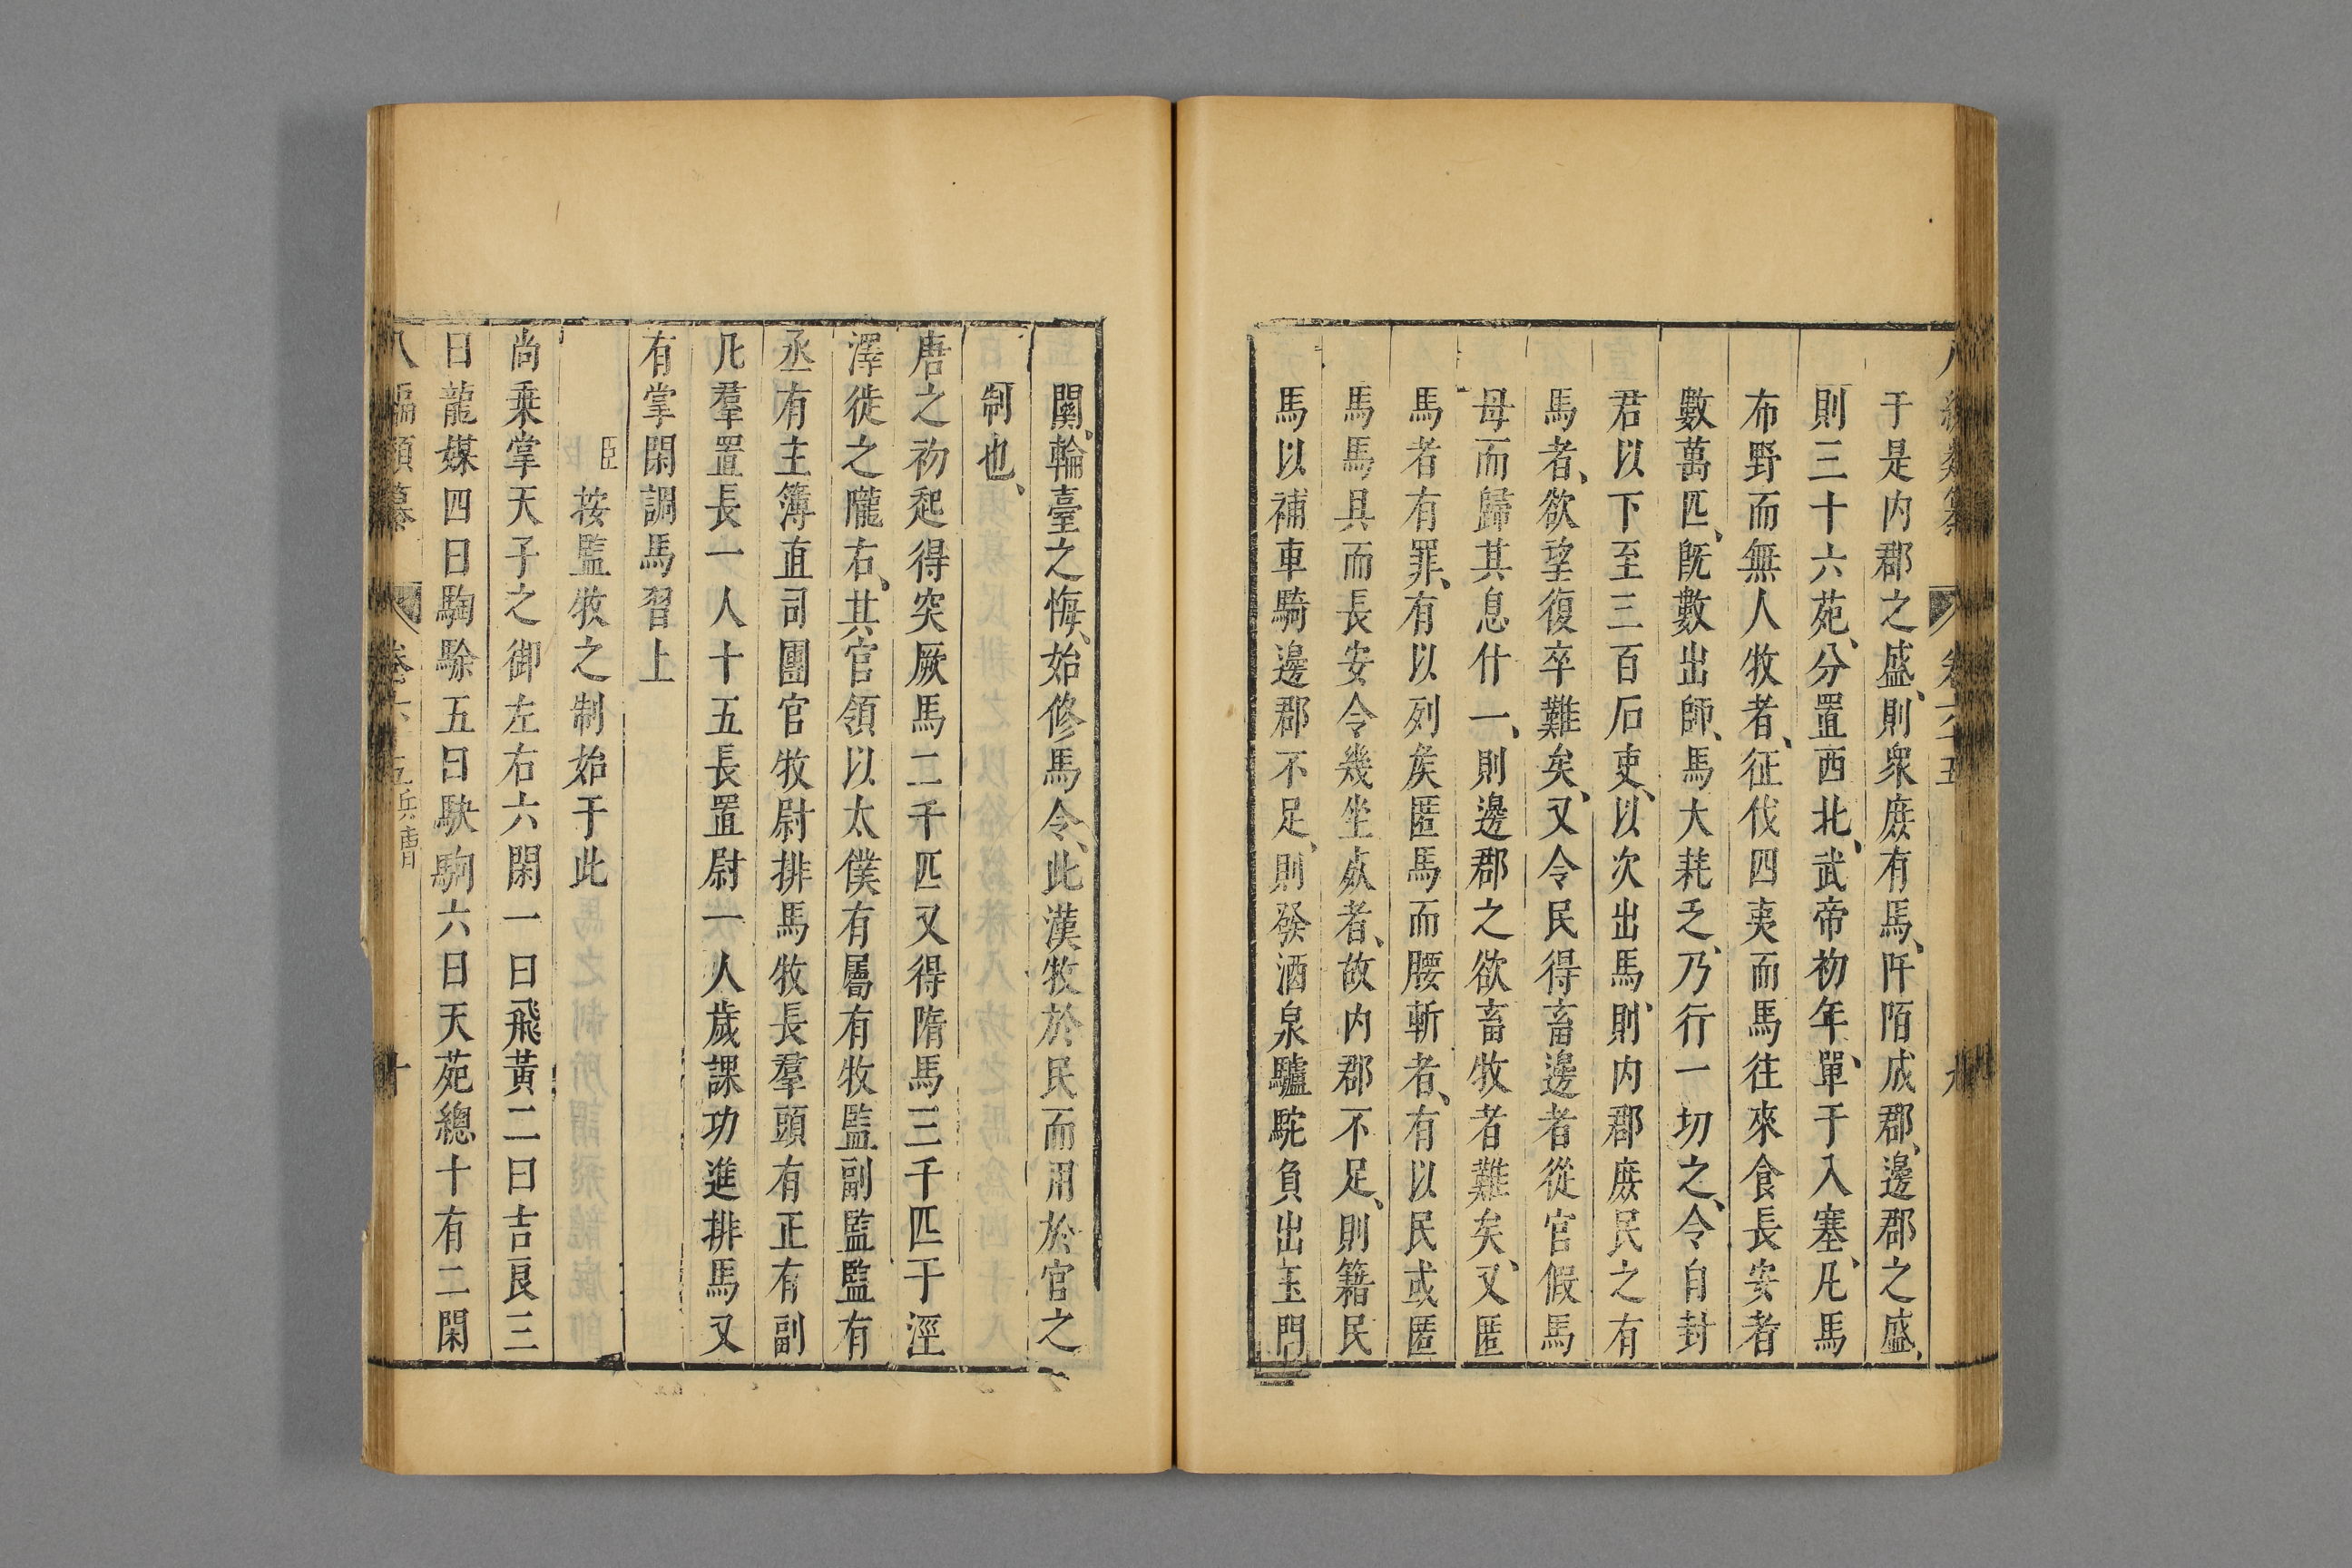 八編類纂 卷六十五 九
于是内郡之盛、則衆庻有馬、阡陌成郡、邊郡之盛、
則三十六苑、分置西北、武帝初年、單于入塞、凡馬
布野而無人牧者、征伐四夷而馬往來食長安者
數萬匹、旣數數出師、馬大耗乏、乃行一切之、令自封
君以下至三百石吏、以次出馬、則内郡庻民之有
馬者、欲望復卒難矣、又令民得畜邊者從官假馬
母而歸其息什一、則邊郡之欲畜牧者難矣、又匿
馬者有罪、有以列矦匿馬而腰斬者、有以民或匿
馬馬具而長安令幾坐死者、故内郡不足、則籍民
馬以補車騎邊郡不足、則發酒泉驢駝負出玉門
關、輪臺之悔、始修馬令、此漢牧於民而用於官之
制也、
唐之初起得突厥馬二千匹又得隋馬三千匹于涇
澤徙之隴右、其官領以太僕有屬有牧監副監監有
丞有主簿直司團官牧尉排馬牧長羣頭有正有副
凡羣置長一人十五長置尉一人歲課功進排馬又
有掌閑調馬習上
臣按監牧之制始于此
尚乗掌天子之御左右六閑一曰飛黃二曰吉良三
曰龍媒四曰騊駼五曰駃騠六曰天苑總十有二閑
八編類纂 卷六十五兵曹 十